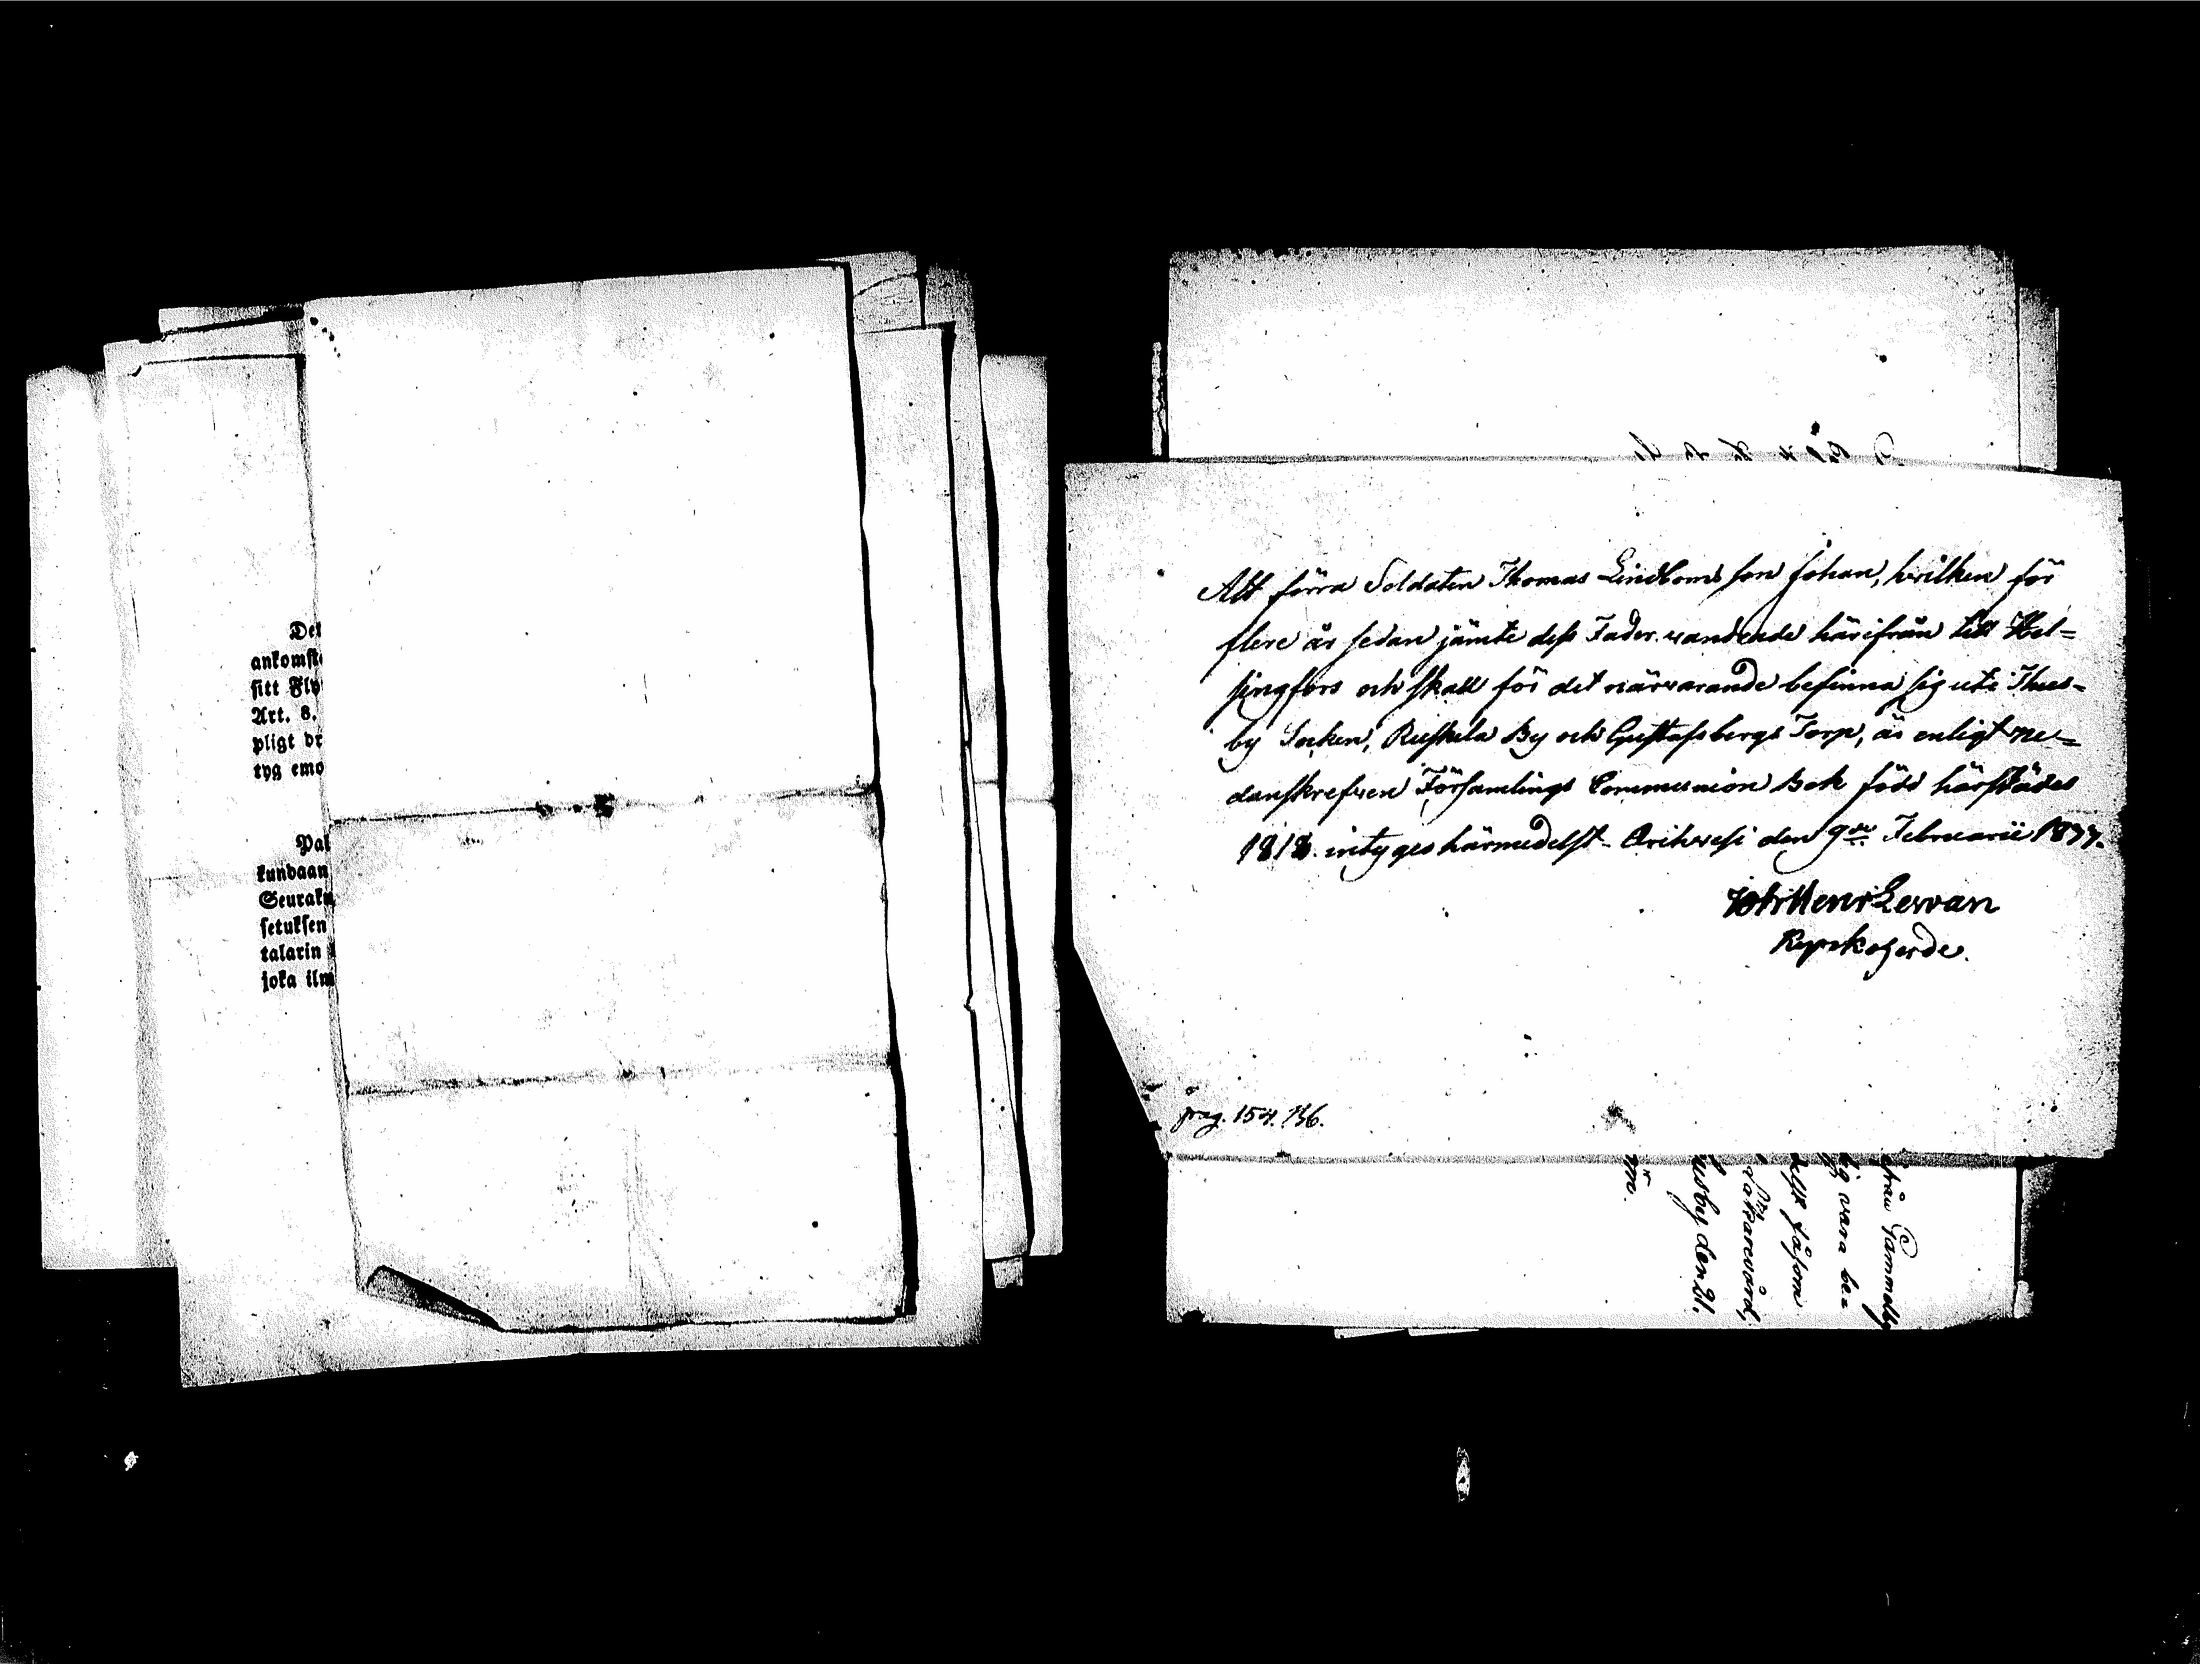 Det
ankomst
sitt Fly
Art. 8.
pligt dr
tyg emo
Pai
kundaan
Seuraku
setuksen
talarin
joka ilm
Att förra Soldaten Thomas Lindboms son Johan, hvilken för
flere år sedan jämte dess Fader vandrade härifrån till Hel=
singfors och skall för det närvarande befinna sig uti Thus-
by Socken, Ruskela By och Gustafsbergs Torp, är enligt ne=
danskrefven Församlings Communion Bok född härstädes
1818. intyges härmedelst. Orihvesi den 9de Februarii 1877.
Joh: Henr Levan
Kyrkoherde.
pag. 154. 736.
ifrån Gammelby
sig vara be=
delst såsom
Läkarevård,
usby den 21.
m.